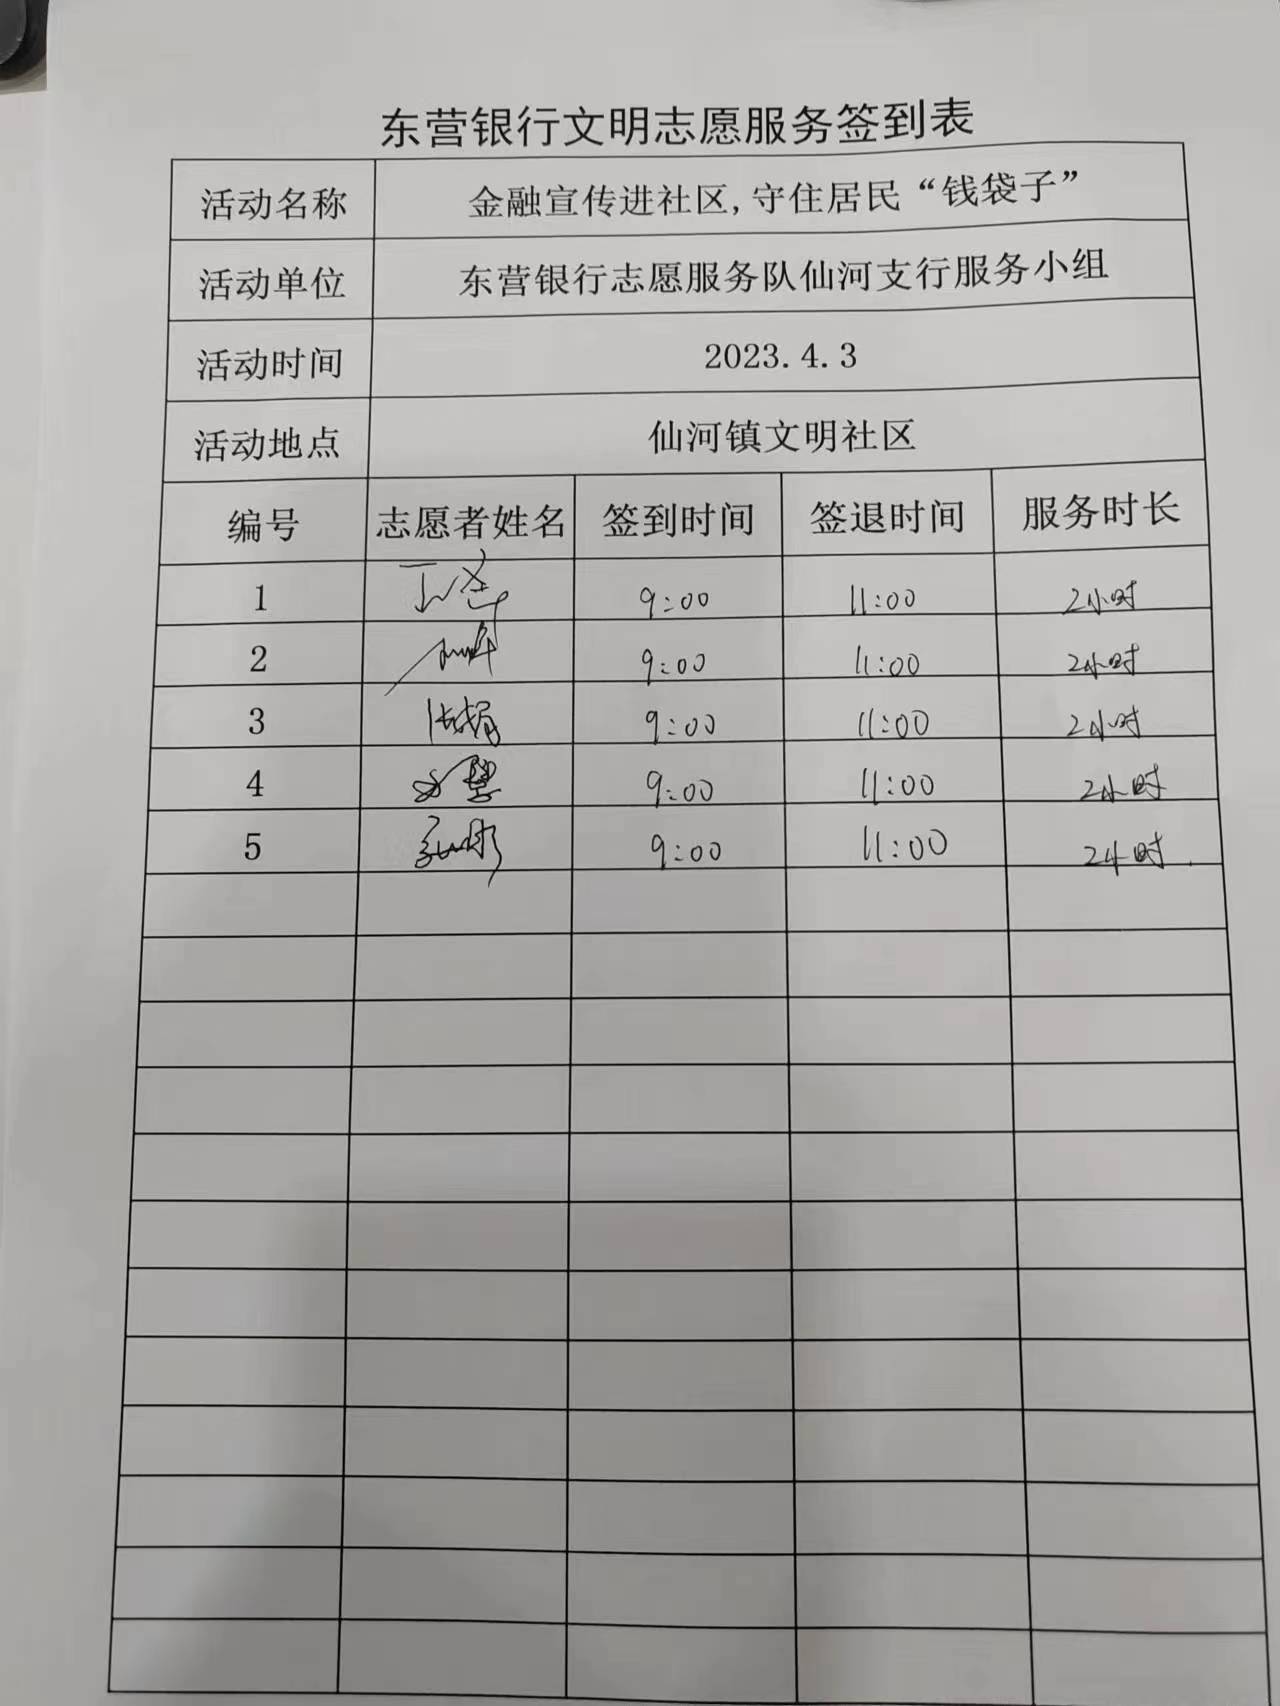 东营银行文明志愿服务签到表
活动名称 金融宣传进社区,守住居民“钱袋子”
活动单位 东营银行志愿服务队仙河支行服务小组
活动时间 2023.4.3
活动地点 仙河镇文明社区
编号 志愿者姓名 签到时间 签退时间 服务时长
1 9:00 11:00 2小时
2 9:00 11:00 2小时
3 9:00 11:00 2小时
4 9:00 11:00 2小时
5 9:00 11:00 2小时